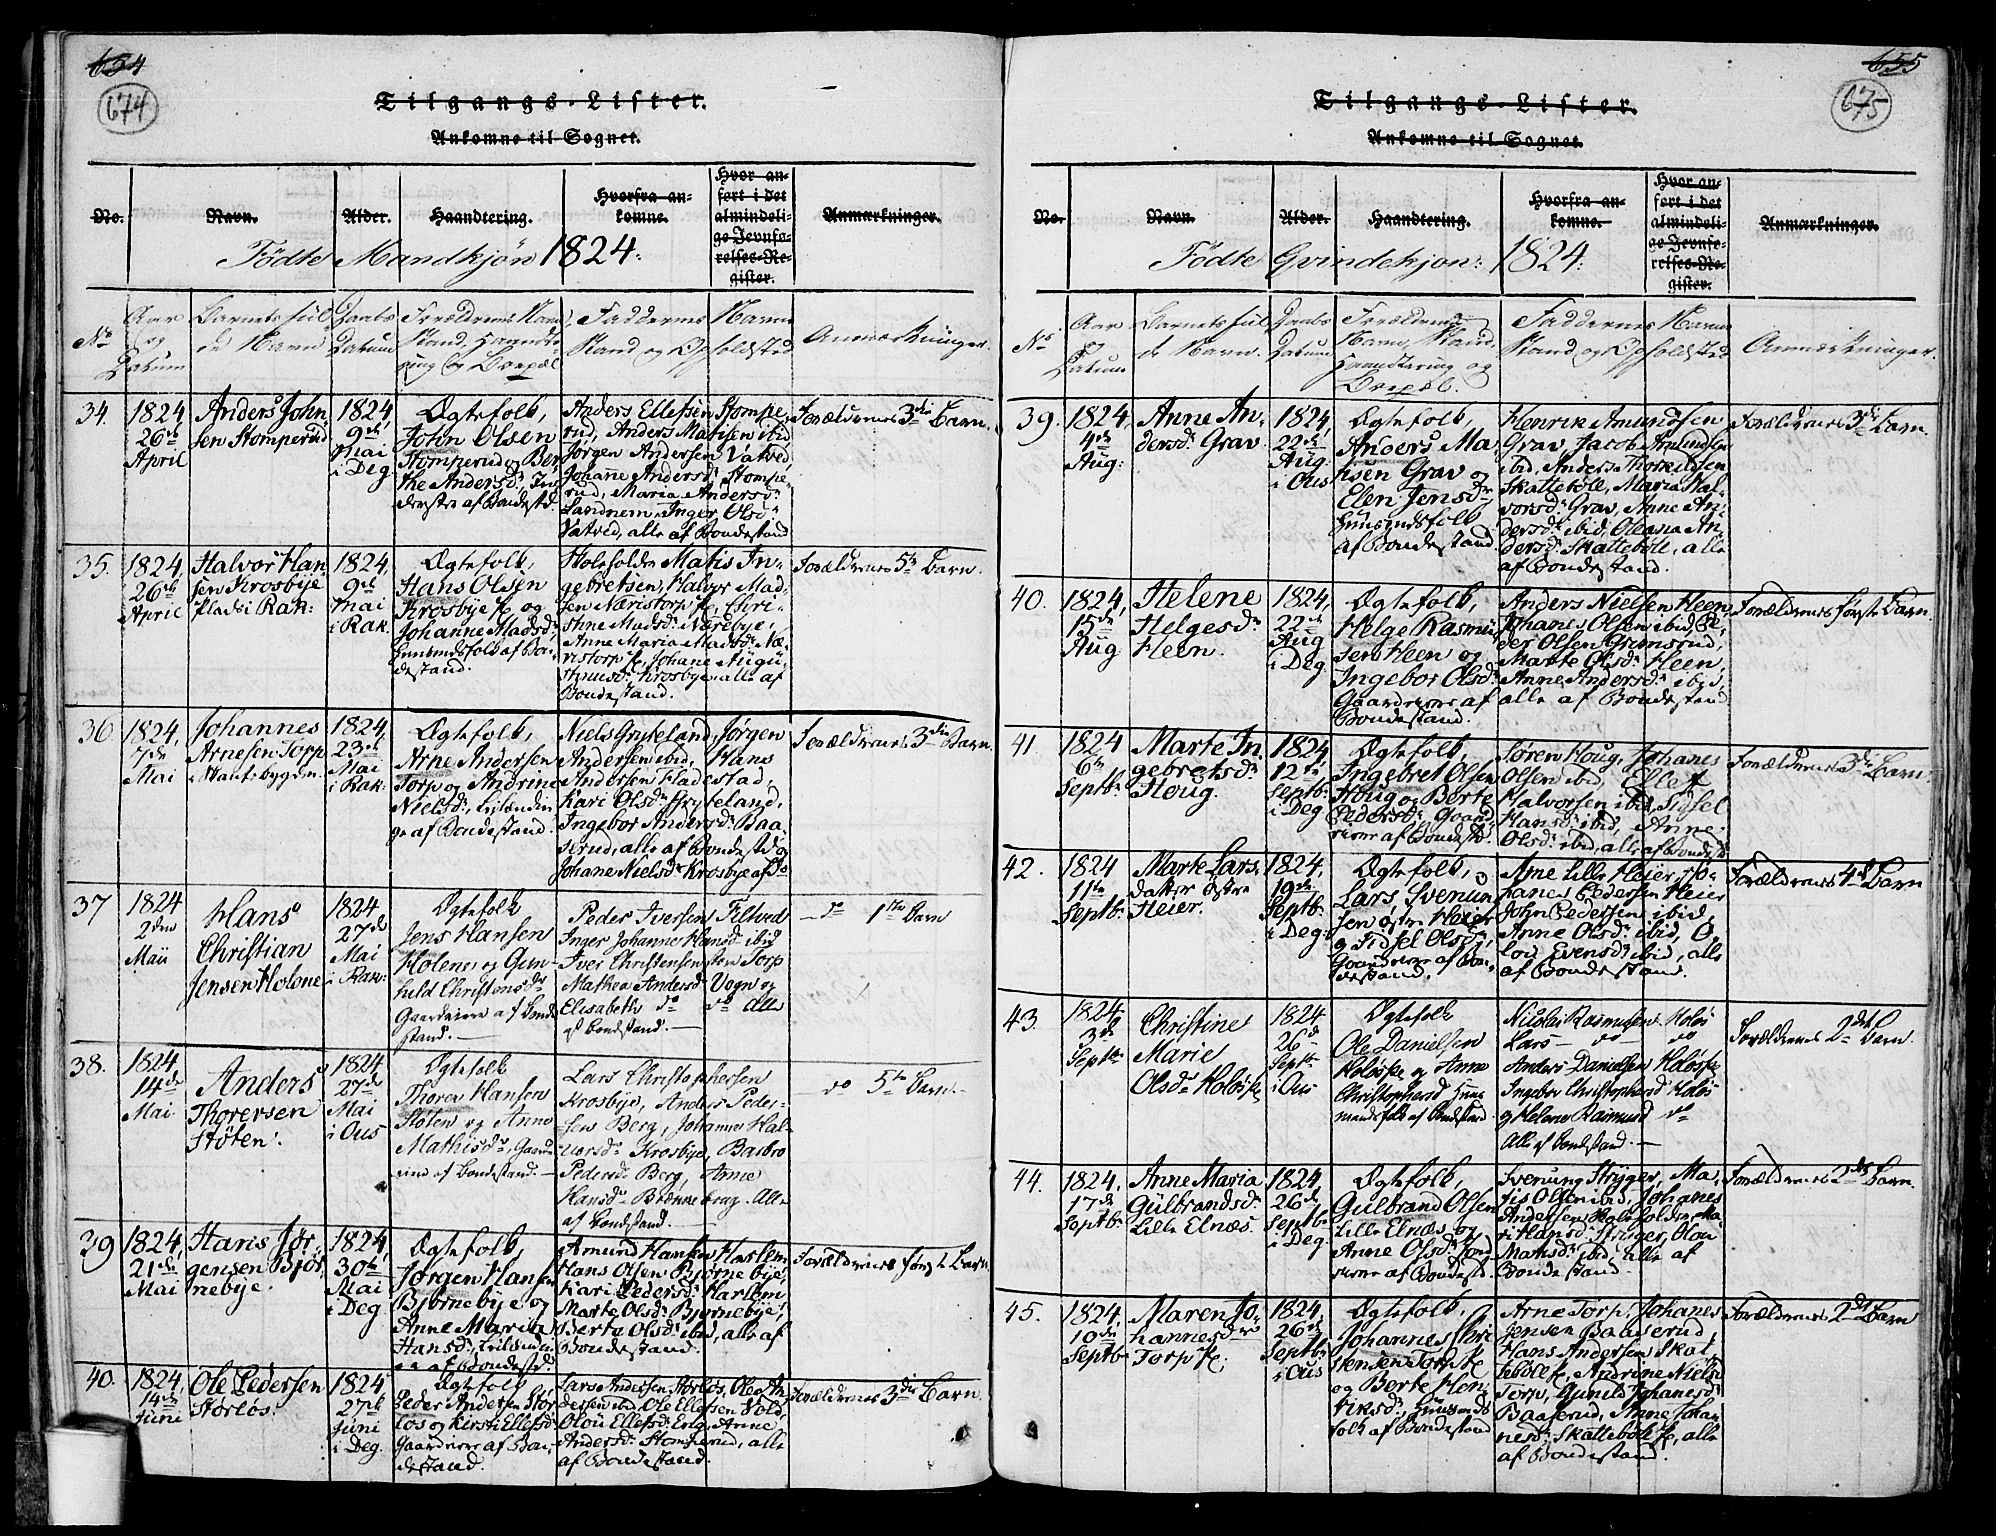 654
674
Tilgangs-Lister.
Ankomne til Sognet.
No.
Navn.
Alder.
Haandtering.
Hvorfra an-
komne.
Hvor an-
ført i det
almindeli-
ge Jevnfø-
relses-Re-
gister.
Anmærkninger.
Fødte Mandkjøn 1824:
No
Aar
og
Datum
Barnets ful
de Navn
Daabs
Datum
Forældrenes Navn,
Stand, Haandte
ring og Boepæl
Faddernes Navne
Stand og Opholdsted
Anmærkninger.
34.
1824
26de
April
Anders John-
sen Stomperud
1824,
9de
Mai
i Deg
Ægtefolk,
John Olsen
Stomperud og Ber-
the Andersd:, In-
derster af Bondestd
Anders Ellefsen Stompe-
rud, Anders Matisen ibid
Jørgen Andersen Vatved,
Johane Andersd: Stompe-
rud, Maria Andersd:
Sandnem, Inger Olsd:
Vatved, alle af Bondestand
Forældrenes 3die Barn.
35.
1824,
26de
April
Halvor Han-
sen Krosbye
plads i Rak:
1824,
9de
Mai
i Rak.
Ægtefolk,
Hans Olsen
Krosbye  og
Johanne Madsd:
Huusmdsfolk af Bon-
destand.
Skoleholder Matis In-
gebretsen, Halvor Mad-
sen Næristorp , Chri-
stine Madsd: Nærebye,
Anne Maria Madsd: Næ-
ristorp , Johane Augu-
stinusd: Krosbye alle af
Bondestand.
Forældrenes 5te Barn.
36
1824,
7de
Mai
Johannes
Arnesen Torp
i Kautsbygden.
1824,
23de
Mai
i Rak:
Ægtefolk,
Arne Andersen
Torp og Andrine
Nielsd:, Leilændin
ge af Bondestand.
Niels Gryteland, Jørgen
Andersen ibid, Hans
Andersen Fladestad,
Kari Olsd: Gryteland,
Ingebor Andersd: Baa-
serud, alle af Bondestd og
Johane Nielsd: Krosbye af Do
Forældrenes 3die Barn.
37
1824
2den
Mai
Hans
Christian
Jensen Holene
1824
27de
Mai
i Rak:
Ægtefolk
Jens Hansen
Holene og Gun-
hild Christensdr
Gaardeiere af Bonde
stand.
Peder Iversen Filtved
Inger Johanne Hansd ibid
Iver Christensen Torp
Mathea Andersd Vogn og
Elisabeth do do Alle
af Bondestand.
— do 1te Barn
38.
1824
14de
Mai
Anders
Thoresen
Støten.
1824
27de
Mai
i Ous
Ægtefolk
Thorer Hansen
Støten og Anne
Mathisdr, Gaard-
eiere af Bondestand.
Lars Christophersen
Krosbye, Anders Peder-
sen Berg, Johanne Hal-
vorsd: Krosbye, Barbro
Pedersd Berg, Anne
Hansd: Brænnebraug. Alle
af Bondestand.
— do 5te Barn.
39
1824,
21de
Mai
Hans Jør-
gensen Bjør-
nebye.
1824,
30te
Mai
i Deg
Ægtefolk,
Jørgen Hansen
Bjørnebye og
Anne Maria
Hansd:, Leilændin
ge af Bondestd.
Amund Hansen Haslem,
Hans Olsen Bjørnebye,
Kari Pedersd: Harlem
Marte Olsd: Bjørnebye,
Berte Olsd: ibid, alle af
Bondestand.
Forældrenes første Barn.
40.
1824
14de
Juni
Ole Pedersen
Storløs.
1824
27de
Juni
i Deg.
Ægtefolk
Peder Andersen Stor-
løs og Kirsti Ellefsd:
Gaardeiere af Bon-
destand.
Lars Andersen Storløs, Ole An-
dersen ibid, Ole Ellefsen Vold,
Olou Ellefsd: Eng, Anne
Andersd: Stomperud, alle
af Bondestand.
Forældrenes 3die Barn.
655
675
Tilgangs-Lister.
Ankomne til Sognet.
No.
Navn.
Alder.
Haandtering.
Hvorfra an-
komne.
Hvor an-
ført i det
almindeli-
ge Jevnfø-
relses-Re-
gister.
Anmærkninger.
Fødte Qvindekjøn: 1824:
No
Aar
og
Datum
Barnets ful
de Navn.
Daabs
Datum
Forældrenes
Navn, Stand,
Haandtering og
Boepæl.
Faddernes Navne
Stand og Opholdsted
Anmærkninger.
39.
1824,
4de
Aug:
Anne An-
dersd: Grav.
1824,
22de
Aug:
i Ous
Ægtefolk,
Anders Ma-
tisen Grav og
Elen Jensdr
Huusmdsfolk
af Bondestand
Henrik Amundsen
Grav, Jacob Amundsen
ibid, Anders Thorkildsen
Skattebøle, Maria Hal-
vorsd: Grav, Anne An-
dersd: ibid, Oleana An-
dersd: Skattebøle, alle
af Bondestand.
Forældrenes 3die Barn.
40.
1824,
15de
Aug
Helene
Helgesd:
Heen.
1824,
22de
Aug
i Deg
Ægtefolk,
Helge Rasmus-
sen Heen og
Ingebor Olsd:
Gaardeiere af
Bondestand.
Anders Nielsen Heen,
Johanes Olsen ibid, Pe-
der Olsen Grimsrud,
Marte Olsd: Heen,
Anne Andersd: ibid,
alle af Bondestand
Forældrenes første Barn.
41.
1824
6te
Septb:
Marte In-
gebretsd:
Houg.
1824
12te
Septb:
i Deg:
Ægtefolk,
Ingebret Olsen
Houg og Berte
Pedersd: Gaard-
eiere af Bondestd:
Søren Houg, Johanes
Olsen ibid, Ellef
Halvorsen ibid, Sidsel
Hansd: ibid, Anne
Olsd: ibid, alle af Bondestd
Forældrenes 3die Barn.
42.
1824
11te
Septb:
Marte Lars-
datter østre
Heier.
1824,
19de
Septb:
i Deg:
Ægtefolk,
Lars Svenun-
sen østre Heier
og Sidsel Olsd:,
Gaardeiere af Bon-
destand.
Arne Lille Heier, Jo-
hanes Pedersen Heier
John Pedersen ibid
Anne Olsd: ibid, O-
lou Evensd: ibid, alle
af Bondestand.
Forældrenes 4de Barn
43.
1824
3de
Septb
Christine
Marie
Olsdr Holøs
1824
26de
Septb:
i Ous
Ægtefolk
Ole Danielsen
Holøs og Anne
Christophersd Huus
mandsfolk af Bondestand
Nicolai Rasmusen Holøs
Lars — do — do
Anders Danielsen Holøs
Ingebor Christophersd Holøs
og Helene Rasmusd do
Alle af Bondestand.
Forældrenes 2det Barn.
44.
1824,
17de
Septb:
Anne Maria
Gulbrandsd:
Lille Elnæs.
1824,
26de
Septb:
i Deg.
Ægtefolk,
Gulbrand Olsen
Lille Elnæs og
Anne Olsd:, Gaard-
eiere af Bondestd.
Svenung Stryger, Ma-
tis Olsen ibid, Johanes
Andersen Skoleholder, Ma-
ri Hansd: Stryger, Olou
Matisd: ibid, alle af
Bondestand.
Forældrenes 2det Barn.
45.
1824,
10de
Septb:
Maren Jo-
hannesdr
Torp
1824,
26de
Septb:
i Ous
Ægtefolk,
Johannes Chri
stensen Torp
og Berte Hen-
riksd:, Huusmds
folk af Bondestand
Arne Torp, Johanes
Jensen Baaserud,
Hans Andersen Skat-
tebøle , Andrine Nielsd
Torp, Gunild Johanesd:
Baaserud, Anne Johan-
nesd: Skattebøle , alle
af Bondestand.
Forældrenes 2det Barn